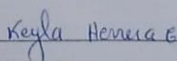 Keyla Herrera E